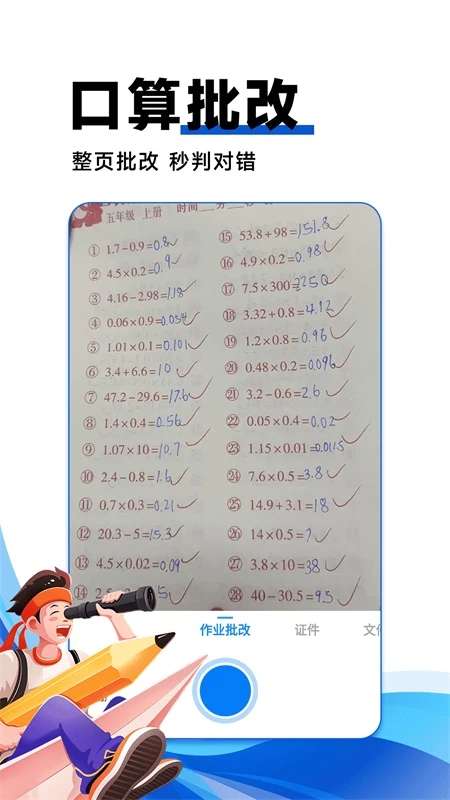 口算批改
整页批改 秒判对错
五年级 上册 时间__分__
① 1.7-0.9=0.8
② 4.5×0.2=0.9
③ 4.16-2.98=1.18
④ 0.06×0.9=0.054
⑤ 1.01×0.1=0.101
⑥ 3.4+6.6=10
⑦ 47.2-29.6=17.6
⑧ 1.4×0.4=0.56
⑨ 1.07×10=10.7
⑩ 2.4-0.8=1.6
⑪ 0.7×0.3=0.21
⑫ 20.3-5=15.3
⑬ 4.5×0.02=0.09
⑭
⑮ 53.8+98=151.8
⑯ 4.9×0.2=0.98
⑰ 7.5×300=2250
⑱ 3.32+0.8=4.12
⑲ 1.2×0.8=0.96
⑳ 0.48×0.2=0.096
㉑ 3.2-0.6=2.6
㉒ 0.05×0.4=0.02
㉓ 1.15×0.01=0.0115
㉔ 7.6×0.5=3.8
㉕ 14.9+3.1=18
㉖ 14×0.5=7
㉗ 3.8×10=38
㉘ 40-30.5=9.5
作业批改 证件 文